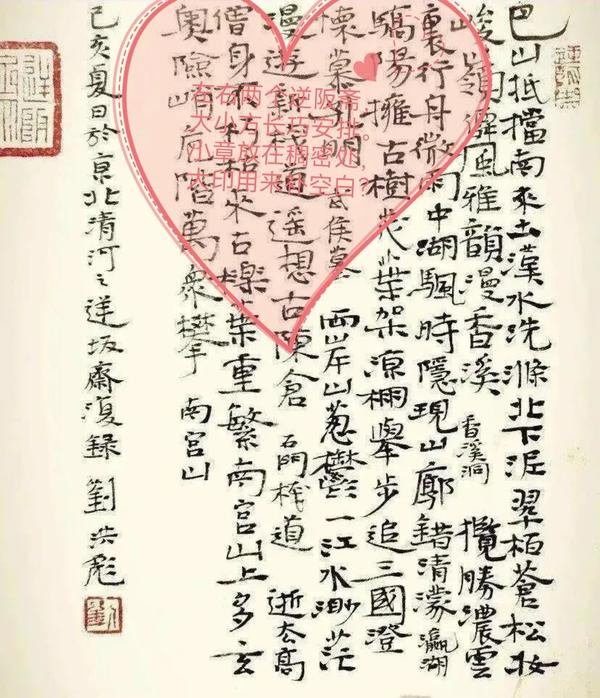 巴山抵擋南來土漢水洗滌北下泥翠栢蒼松妝
峻嶺僻風雅韻漫香溪 香溪洞 攬勝濃雲
裏行舟微雨中湖颿時隱現山廓錯清濛 瀛湖
驕陽擁古樹茂葉架涼棚舉步追三國澄
懷慕孔明 武侯墓 兩岸山蔥鬱一江水渺茫
漫遊新棧道遥想古陳倉 石門棧道 逝去高
僧身不朽枯來古櫟葉重繁南宮山上多玄
奧險峰危階萬衆攀 南宮山
己亥夏日於京北清河之逆坂齋復錄 劉洪彪
劉
右两个逆阪斋
大小方长巧安排。
小章放在稠密处，
大印用来补空白？